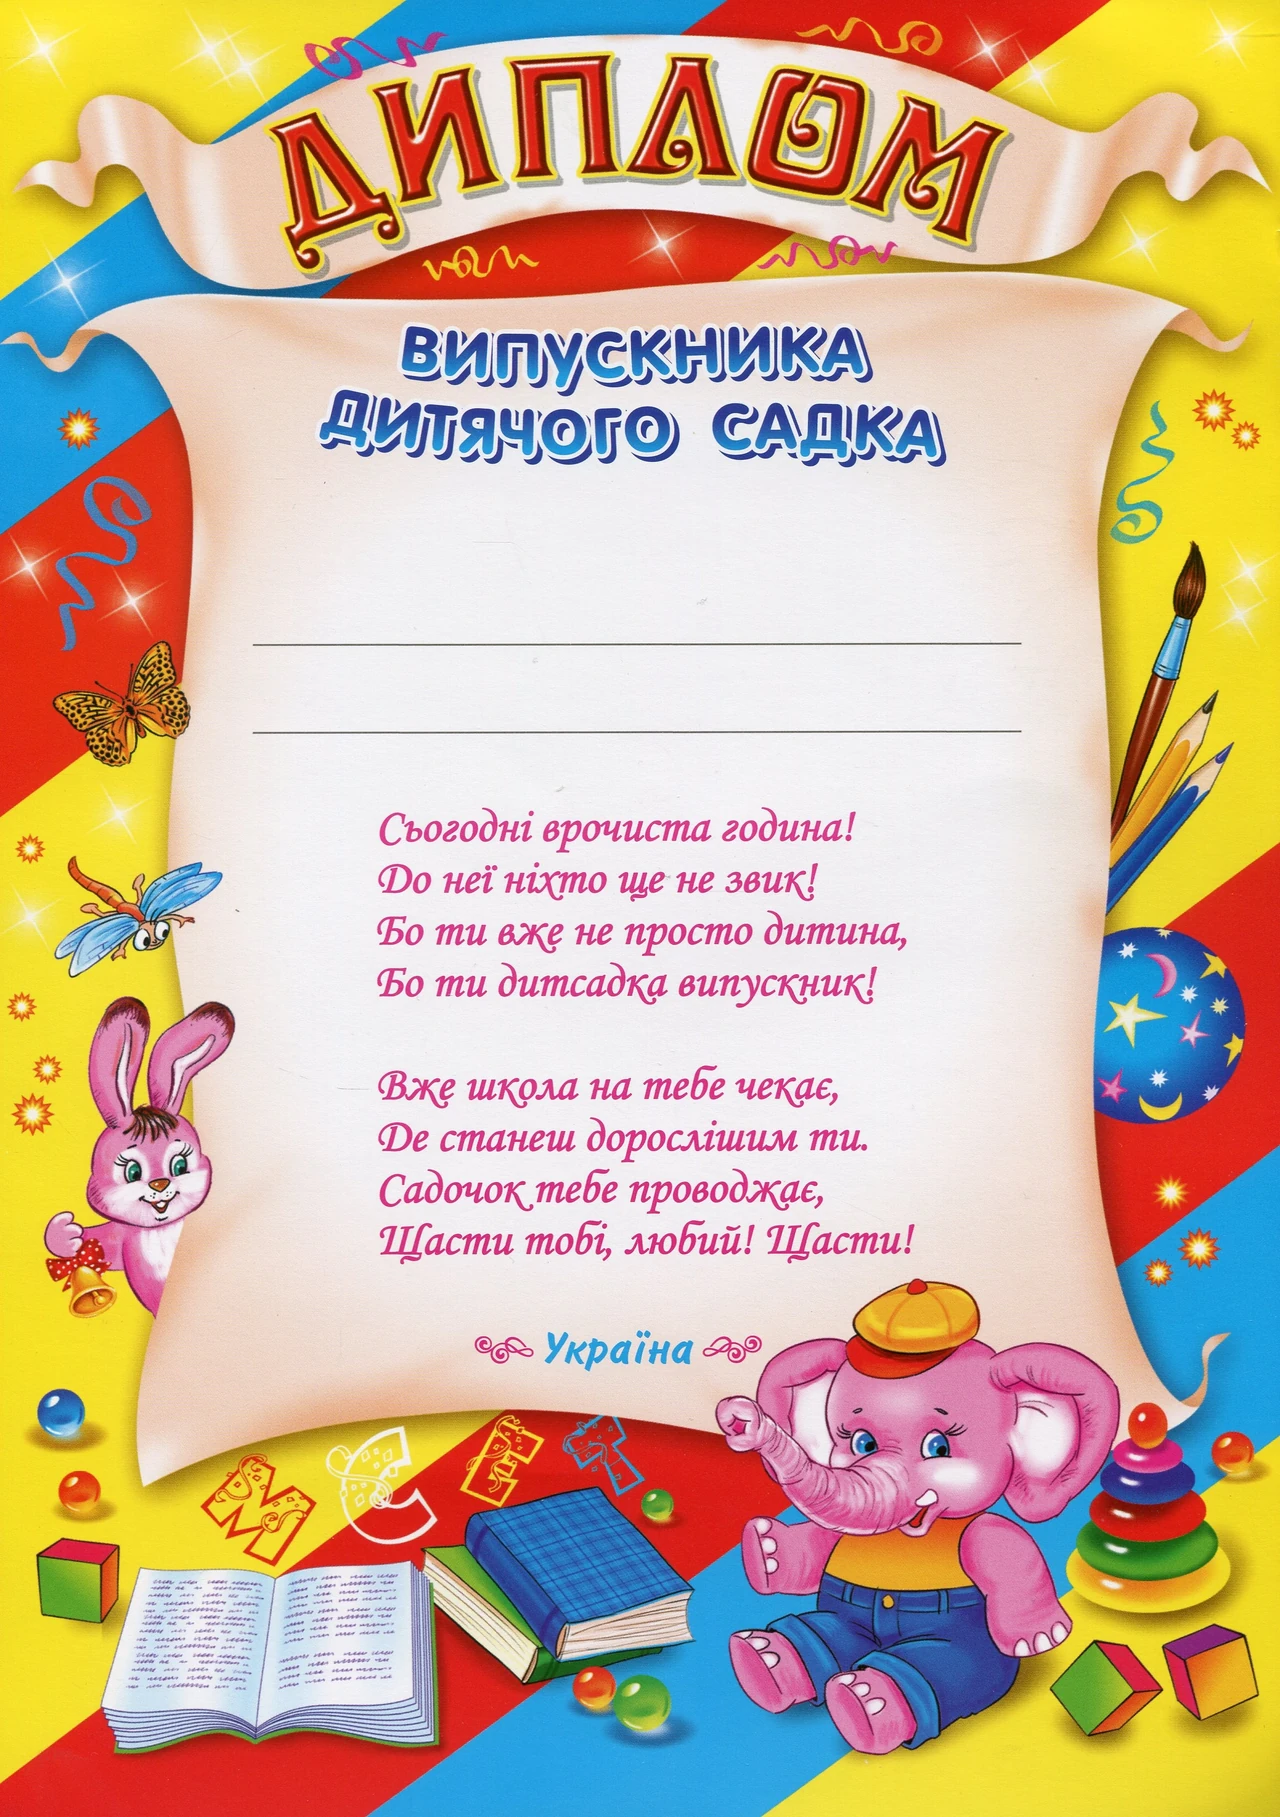 ДИПЛОМ
ВИПУСКНИКА
ДИТЯЧОГО САДКА
Сьогодні врочиста година!
До неї ніхто ще не звик!
Бо ти вже не просто дитина,
Бо ти дитсадка випускник!
Вже школа на тебе чекає,
Де станеш дорослішим ти.
Садочок тебе проводжає,
Щасти тобі, любий! Щасти!
Україна
М Є Г Т